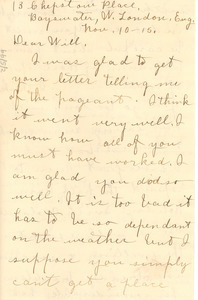 13 Chepstow Place,
Bayswater, W. London, Eng.
Nov. 10-16.
Dear Will,
I was glad to get
your letter telling me
of the pageant. I think
it went very well. I
know how all of you
must have worked. I
am glad you dod so
well. It is too bad it
has to be so dependant
on the weather but I
suppose you simply
can't get a place